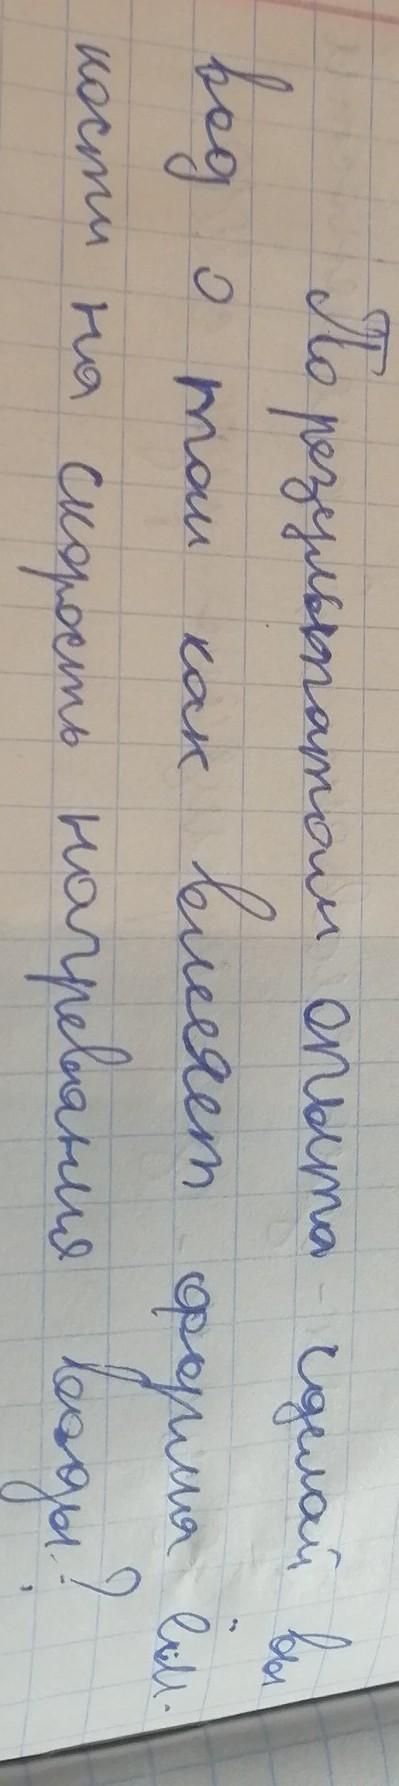 По результатам опыта сделай вы
вод о том как влияет форма ём.
кости на скорость нагревания воды?